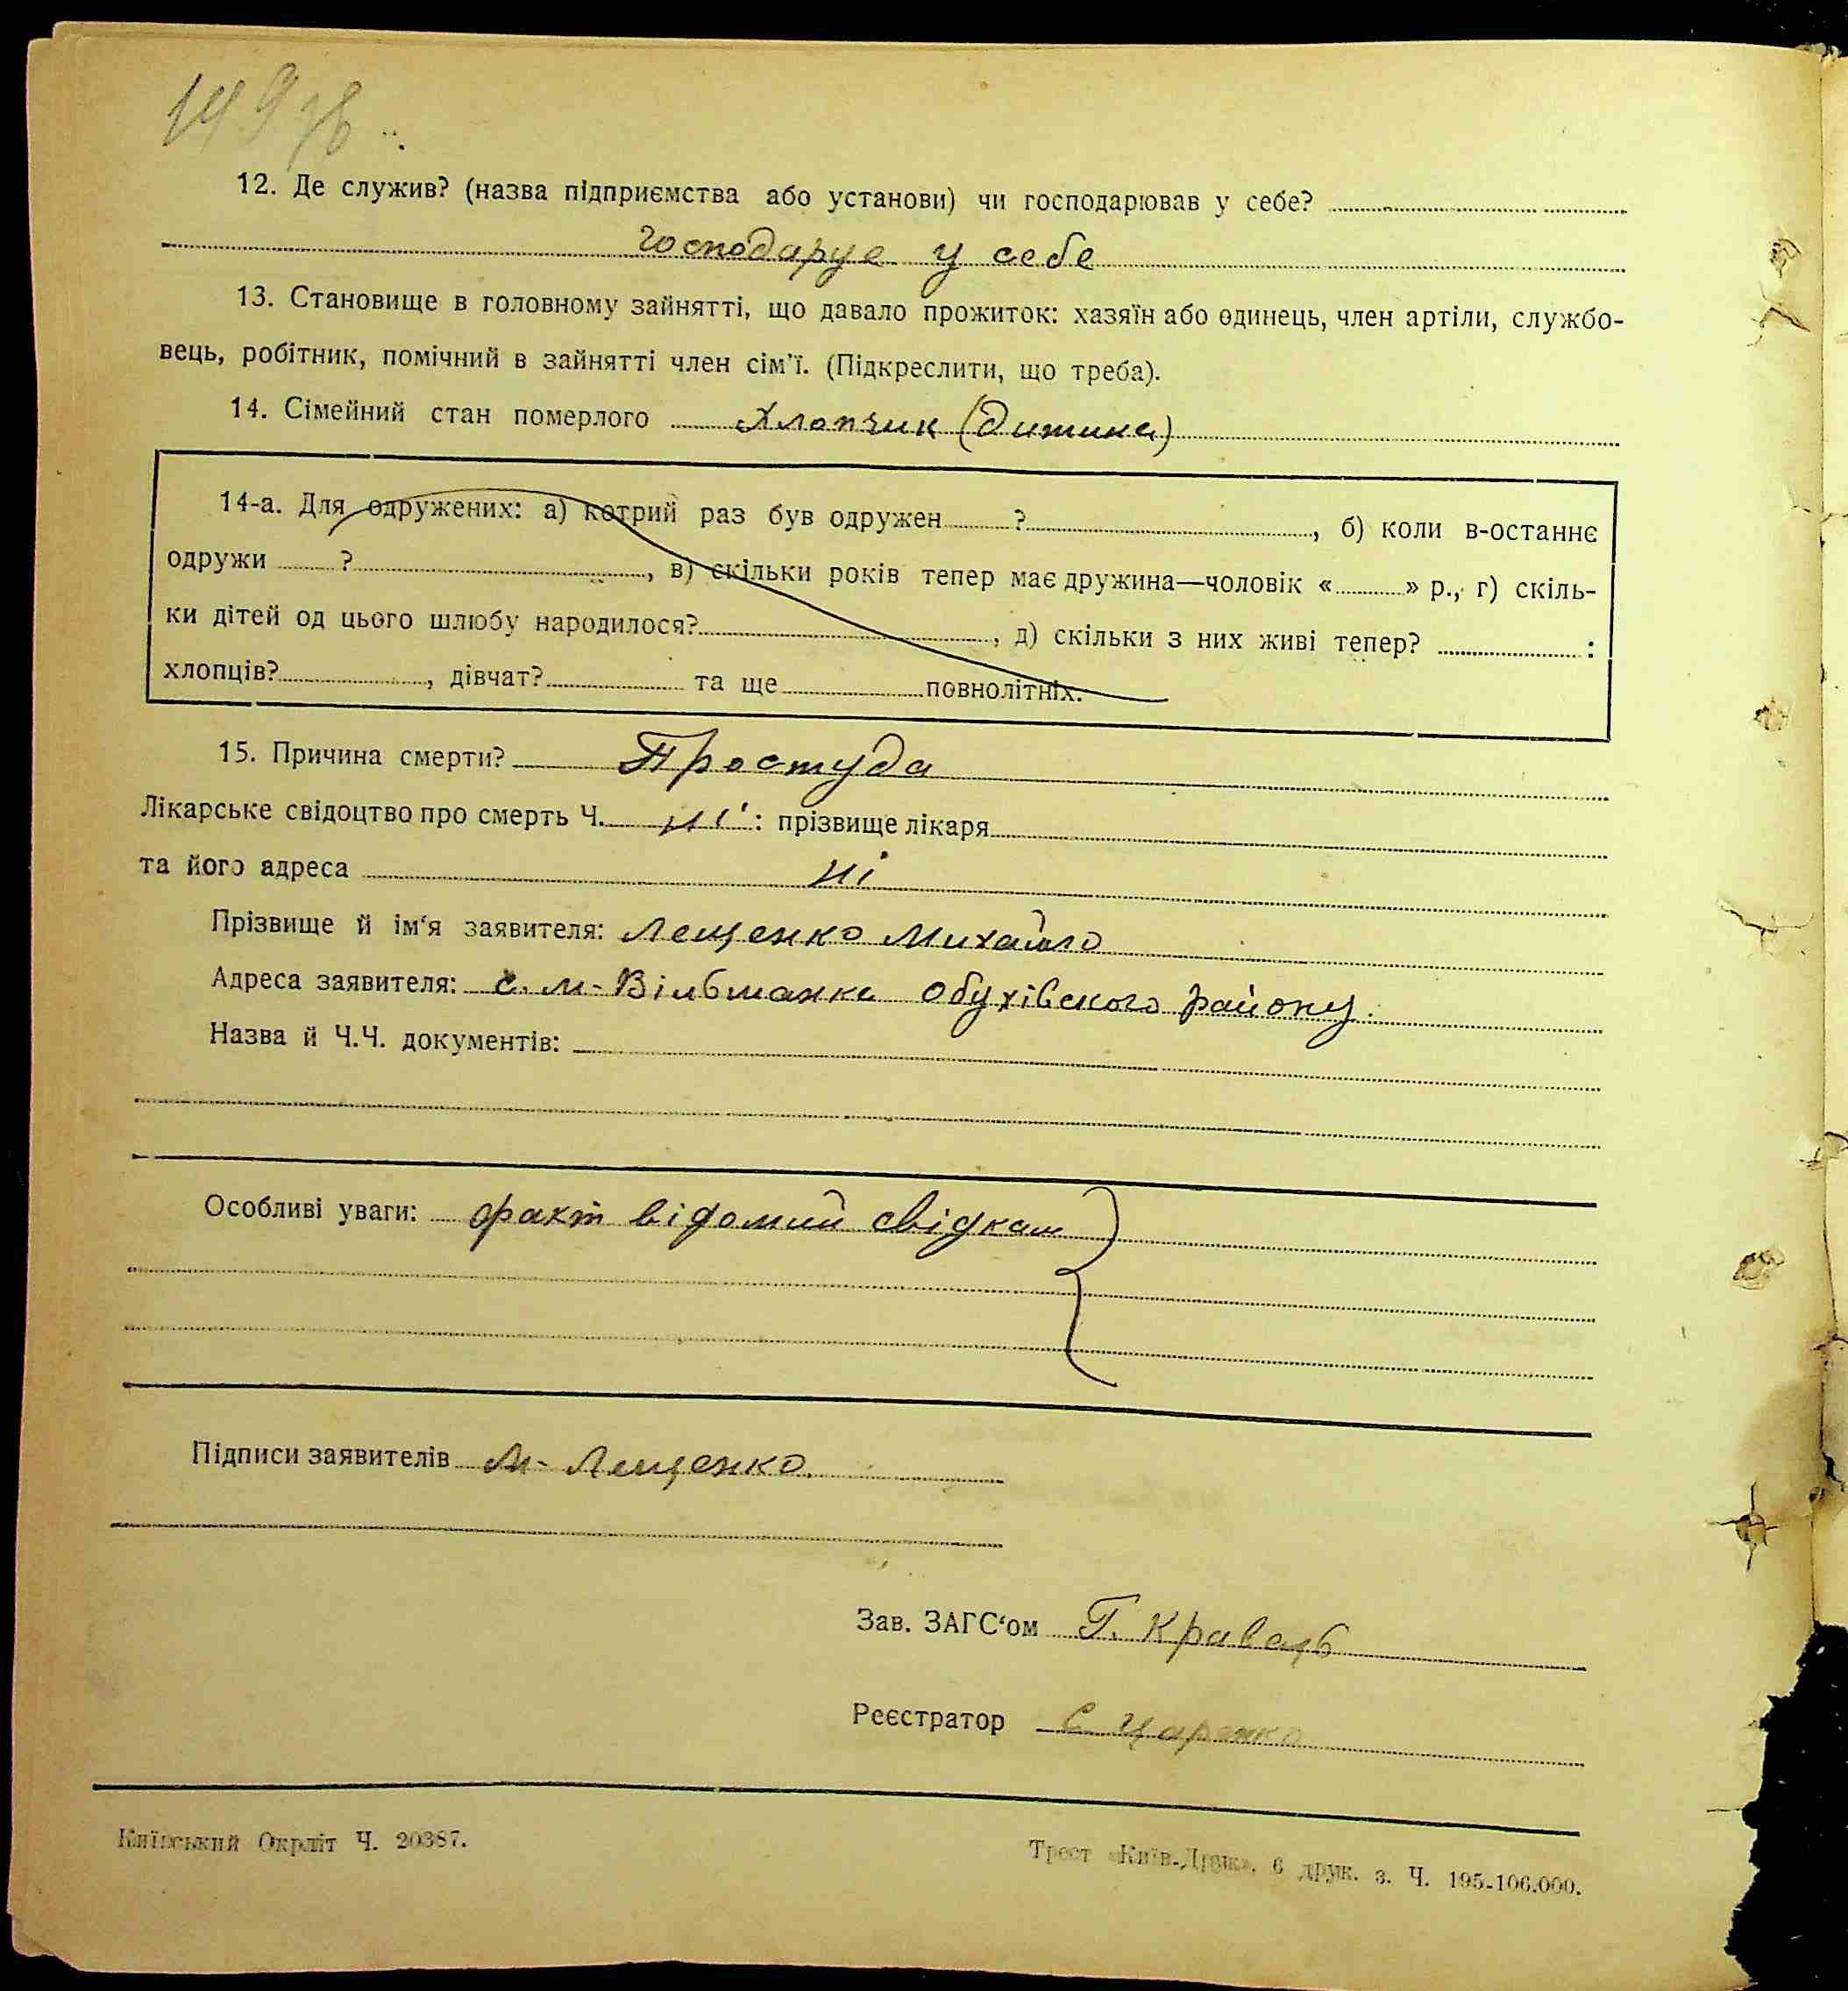 149 зв
12. Де служив? (назва підприємства або установи) чи господарював у себе?
господарує у себе
13. Становище в головному зайнятті, що давало прожиток: хазяїн або одинець, член артіли, службо-
вець, робітник, помічний в зайнятті член сім'ї. (Підкреслити, що треба).
14. Сімейний стан померлого Хлопчик (дитина)
14-а. Для одружених: а) котрий раз був одружен ? , б) коли в-останнє
одружи ? , в) скільки років тепер має дружина—чоловік « » р., г) скіль-
ки дітей од цього шлюбу народилося? , д) скільки з них живі тепер? :
хлопців? , дівчат? та ще повнолітніх.
15. Причина смерти? Простуда
Лікарське свідоцтво про смерть Ч. ні : прізвище лікаря
та його адреса ні
Прізвище й ім'я заявителя: Лещенко Михайло
Адреса заявителя: с. м-Вільшанка Обухівського району.
Назва й Ч.Ч. документів:
Особливі уваги: факт відомий свідкам
Підписи заявителів М- Лещенко
Зав. ЗАГС'ом Г. Кравець
Реєстратор С Царенко
Київський Окрліт Ч. 20387.
Трест «Київ-Друк», 6 друк. з. Ч. 195-106.000.